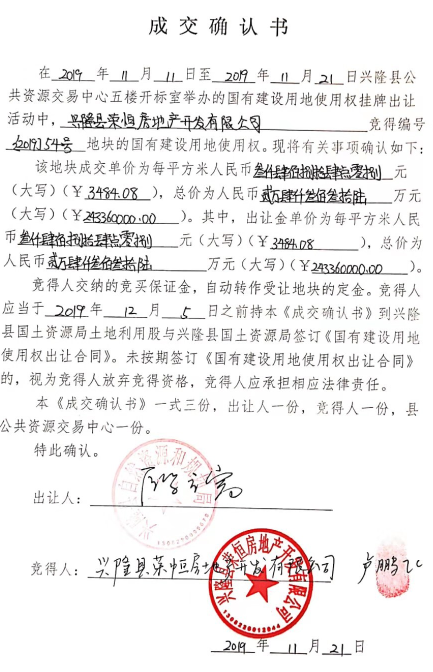 成交确认书
在 2019 年 11 月 11 日至 2019 年 11 月 21 日兴隆县公
共资源交易中心五楼开标室举办的国有建设用地使用权挂牌出让
活动中，兴隆县荣恒房地产开发有限公司 竞得编号
[2019]54号 地块的国有建设用地使用权。现将有关事项确认如下：
该地块成交单价为每平方米人民币叁仟肆佰捌拾肆元零捌 元
（大写）（￥ 3484.08 ），总价为人民币贰万肆仟叁佰叁拾陆 万元
（大写）（￥ 243360000.00 ）。其中，出让金单价为每平方米人民
币叁仟肆佰捌拾肆元零捌 元（大写）（￥ 3484.08 ），总价为
人民币贰万肆仟叁佰叁拾陆 万元（大写）（￥243360000.00 ）。
竞得人交纳的竞买保证金，自动转作受让地块的定金。竞得人
应当于 2019 年 12 月 5 日之前持本《成交确认书》到兴隆
县国土资源局土地利用股与兴隆县国土资源局签订《国有建设用地
使用权出让合同》。未按期签订《国有建设用地使用权出让合同》
的，视为竞得人放弃竞得资格，竞得人应承担相应法律责任。
本《成交确认书》一式三份，出让人一份，竞得人一份，县
公共资源交易中心一份。
特此确认。
出让人：
竞得人：兴隆县荣恒房地产开发有限公司 卢鹏飞
兴隆县荣恒房地产开发有限公司
2019 年 11 月 21 日